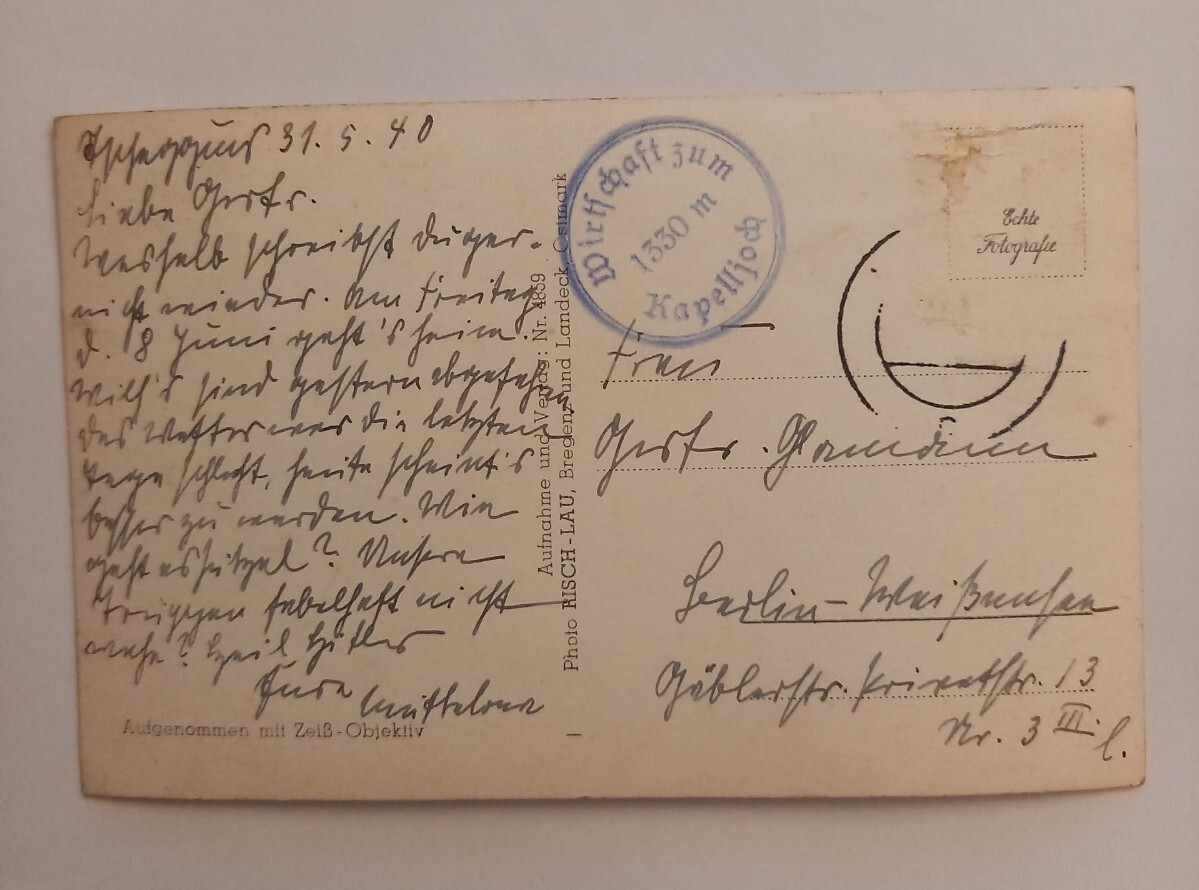 Tschagguns 31. 5. 40
Liebe
Weshalb schreibst du gar
nicht wieder. Am Freitag
d. 8 Juni geht's heim.
sind gestern abgefahren
das Wetter war die letzten
Tage schlecht, heute scheint's
besser zu werden. Wie
geht es ? Unsere
Truppen fabelhaft nicht
wahr? Heil Hitler
Eure
Aufgenommen mit Zeiß-Objektiv
Aufnahme und Verlag: Nr. 4859
Photo RISCH-LAU, Bregenz und Landeck, Ostmark
Wirtschaft zum
1330 m
Kapelljoch
Echte
Fotografie
Frau
Berlin-Weißensee
Gäblerstr. Privatstr. 13
Nr. 3 III. l.